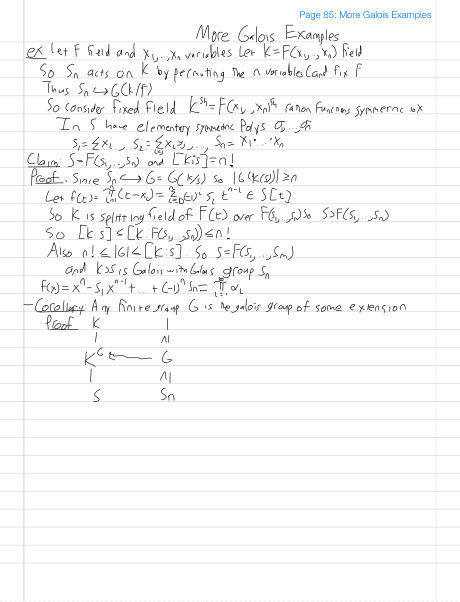 Page 85: More Galois Examples
More Galois Examples
ex let F field and x₁,...,xₙ variables Let K=F(x₁,...,xₙ) field
So Sₙ acts on K by permuting the n variables (and fix F
Thus Sₙ ↪ G(K/F)
So consider fixed field K^{Sₙ} = F(x₁,...,xₙ)^{Sₙ} ration functions symmetric in x
In S have elementary symmetric Polys σ₁...σₙ
S₁ = Σxᵢ , S₂ = Σ_{i<j} xᵢxⱼ , ... , Sₙ = x₁·...·xₙ
Claim: S=F(S₁,...,Sₙ) and [K:S]=n!
Proof. Since Sₙ ↪ G = G(K/S) so |G(K/S)| ≥ n
Let f(t) = ∏(t-xᵢ) = Σ(-1)ⁱ Sᵢ tⁿ⁻ⁱ ∈ S[t]
So K is splitting field of F(t) over F(S₁,...,Sₙ) so S⊃F(S₁,...,Sₙ)
So [K:S] ≤ [K:F(S₁,...,Sₙ)] ≤ n!
Also n! ≤ |G| ≤ [K:S]. So S=F(S₁,...,Sₙ)
and K⊃S is Galois with Galois group Sₙ
f(x) = xⁿ - S₁xⁿ⁻¹ + ... + (-1)ⁿ Sₙ = ∏ αᵢ
- Corollary: Any finite group G is the galois group of some extension
Proof K 1
| ∧|
K^G ⟵ G
| ∧|
S Sₙ